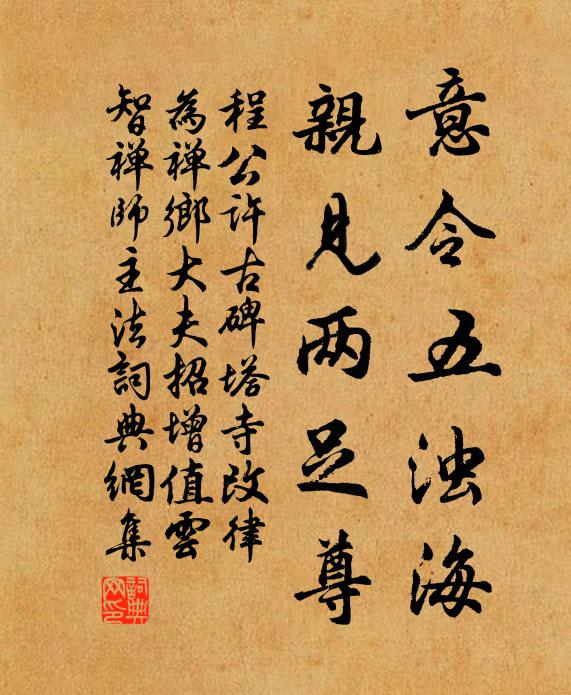 意令五浊海
親見两足尊
程公許古碑塔寺改律
為禅鄉大夫招增值雲
智禅師主法詞典網集